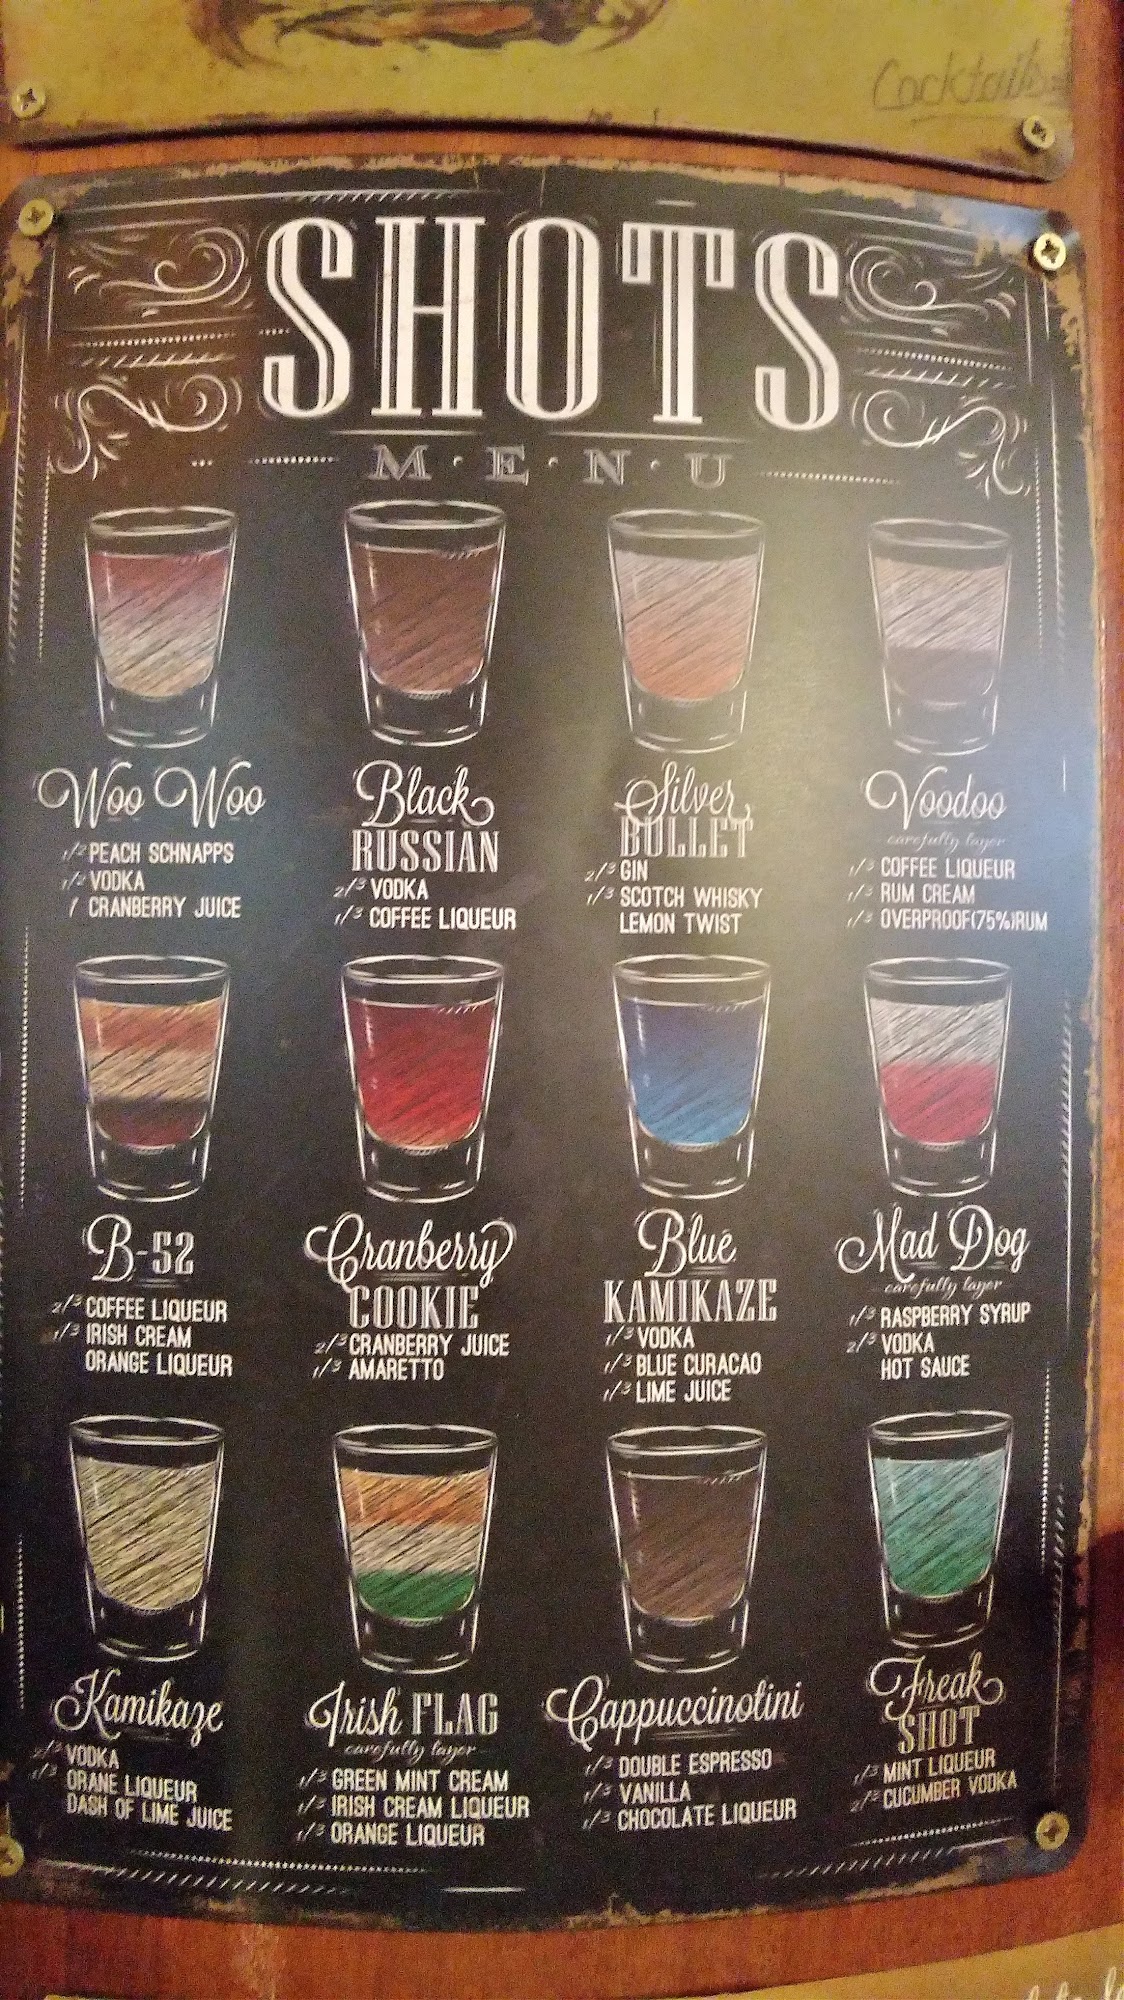 Cocktails
SHOTS
M·E·N·U
Woo Woo
1/2 PEACH SCHNAPPS
1/2 VODKA
1 CRANBERRY JUICE
Black
RUSSIAN
2/3 VODKA
1/3 COFFEE LIQUEUR
Silver
BULLET
2/3 GIN
1/3 SCOTCH WHISKY
LEMON TWIST
Voodoo
carefully layer
1/3 COFFEE LIQUEUR
1/3 RUM CREAM
1/3 OVERPROOF(75%)RUM
B-52
2/3 COFFEE LIQUEUR
1/3 IRISH CREAM
ORANGE LIQUEUR
Cranberry
COOKIE
2/3 CRANBERRY JUICE
1/3 AMARETTO
Blue
KAMIKAZE
1/3 VODKA
1/3 BLUE CURACAO
1/3 LIME JUICE
Mad Dog
carefully layer
1/3 RASPBERRY SYRUP
2/3 VODKA
HOT SAUCE
Kamikaze
2/3 VODKA
1/3 ORANE LIQUEUR
DASH OF LIME JUICE
Irish FLAG
carefully layer
1/3 GREEN MINT CREAM
1/3 IRISH CREAM LIQUEUR
1/3 ORANGE LIQUEUR
Cappuccinotini
1/3 DOUBLE ESPRESSO
1/3 VANILLA
1/3 CHOCOLATE LIQUEUR
Freak
SHOT
1/3 MINT LIQUEUR
2/3 CUCUMBER VODKA